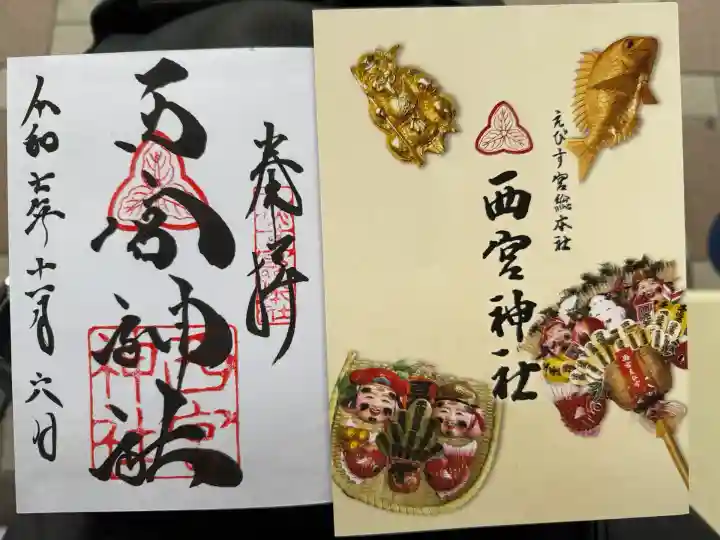 奉拝
西宮神社
令和七年十一月六日
えびす宮総本社
西宮神社